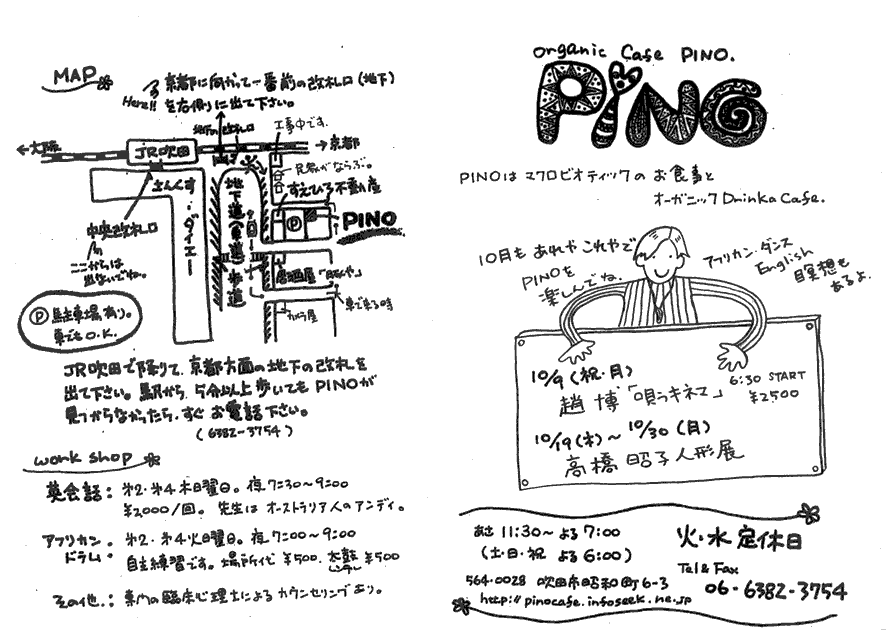 MAP
京都に向かって一番前の改札口(地下)
を右側りに出て下さい。
Here!!
地下の改札口
工事中です。
←大阪
JR吹田
→京都
民家がならぶ。
すえひろ不動産
さんくす
・ダイエー
地下道(車道)歩道
P
PINO
中央改札口
ここからは
出ないでね。
居酒屋「
車で来る時
カメラ屋
P 駐車場あり。
車でもO.K.
JR吹田で降りて、京都方面の地下の改札を
出て下さい。駅から、5分以上歩いてもPINOが
見つからなかったら、すぐお電話下さい。
(6382-3754)
work shop
英会話: 第2・第4木曜日。夜7:30~9:00
¥2,000/回。先生はオーストラリア人のアンディ。
アフリカン・ドラム: 第2・第4火曜日。夜7:00~9:00
自主練習です。場所代 ¥500. 太鼓レンタル ¥500
その他.: 専門の臨床心理士によるカウンセリングあり。
organic Cafe PINO.
PiNO
PINOは マクロビオティックの お食事と
オーガニックDrinkのCafe.
10月も あれや これやで
PINOを
楽しんでね。
アフリカン・ダンス
English
瞑想も
あるよ.
10/9 (祝・月)
6:30 START
趙 博「唄うキネマ」 ¥2500
10/19(木)~10/30(月)
高橋 昭子人形展
あさ 11:30~よる 7:00
(土・日・祝 よる 6:00)
火・水 定休日
Tel & Fax
564-0028 吹田市昭和町6-3
06-6382-3754
http://pinocafe.infoseek.ne.jp